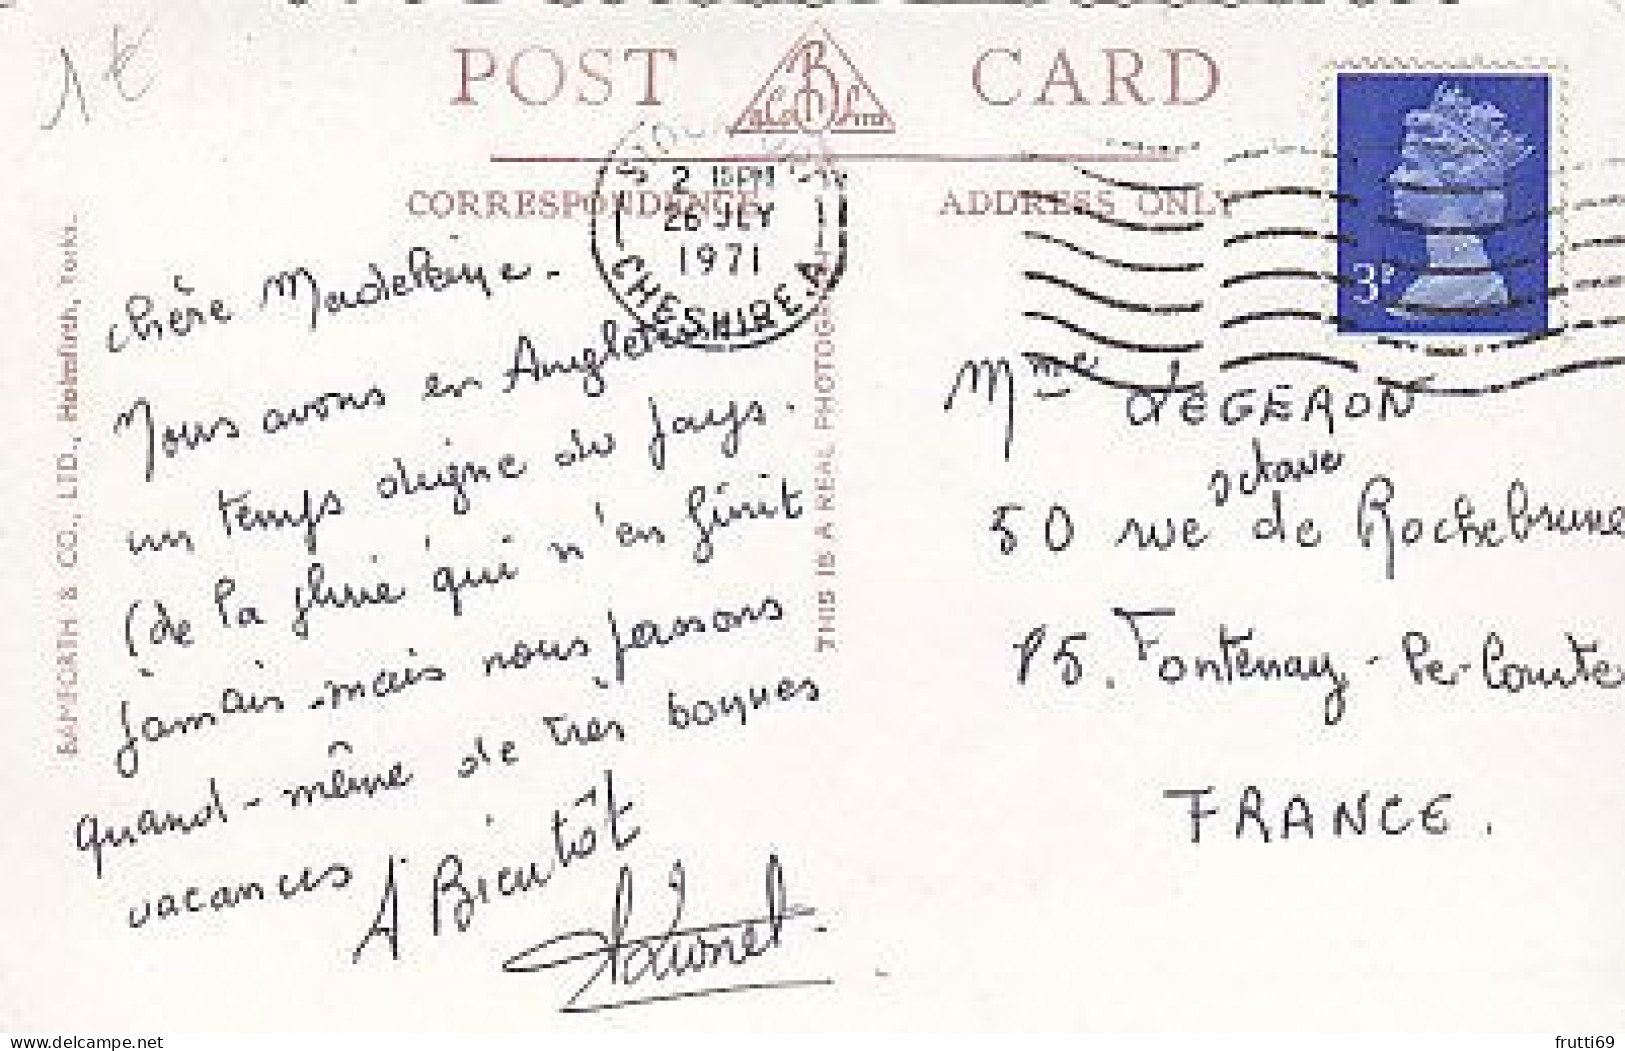 1€
POST CARD
B & Co Ltd
CORRESPONDENCE
ADDRESS ONLY
2 15PM
26 JLY
1971
CHESHIRE.A
3P
BAMFORTH & CO., LTD., Holmfirth, Yorks.
THIS IS A REAL PHOTOGRAPH
chère Madeleine.
Nous avons en Angleterre
un temps digne du pays.
(de la pluie qui n'en finit
jamais. mais nous passons
quand-même de très bonnes
vacances
A Bientôt
Mme déGERON
50 rue octave de Rochebrune
85. Fontenay-le-Comte
FRANCE.
delcampe.net
frutti69